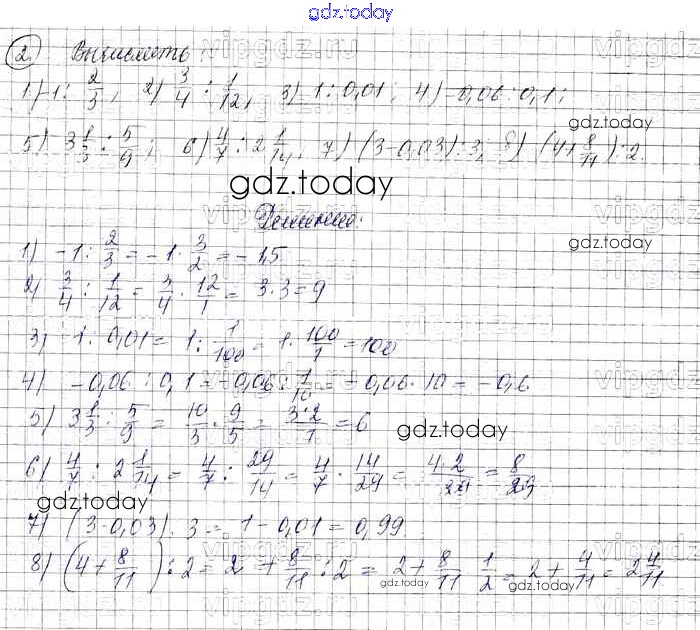 gdz.today
2. Вычислить:
1) -1 : 2/3, 2) 3/4 : 1/12, 3) 1 : 0,01; 4) -0,06 : 0,1;
gdz.today
5) 3 1/3 : 5/9; 6) 4/7 : 2 1/14, 7) (3-0,03) : 3, 8) (4+8/11) : 2.
gdz.today
Решение:
gdz.today
1) -1 : 2/3 = -1 · 3/2 = -1,5
2) 3/4 : 1/12 = 3/4 · 12/1 = 3·3 = 9
3) 1 : 0,01 = 1 : 1/100 = 1 · 100/1 = 100
4) -0,06 : 0,1 = -0,06 : 1/10 = -0,06 · 10 = -0,6.
5) 3 1/3 : 5/9 = 10/3 · 9/5 = 3·2/1 = 6
gdz.today
6) 4/7 : 2 1/14 = 4/7 : 29/14 = 4/7 · 14/29 = 4·2/29 = 8/29
gdz.today
7) (3-0,03) : 3 = 1-0,01 = 0,99.
8) (4+8/11) : 2 = 2 + 8/11 : 2 = 2 + 8/11 · 1/2 = 2 + 4/11 = 2 4/11
gdz.today gdz.today